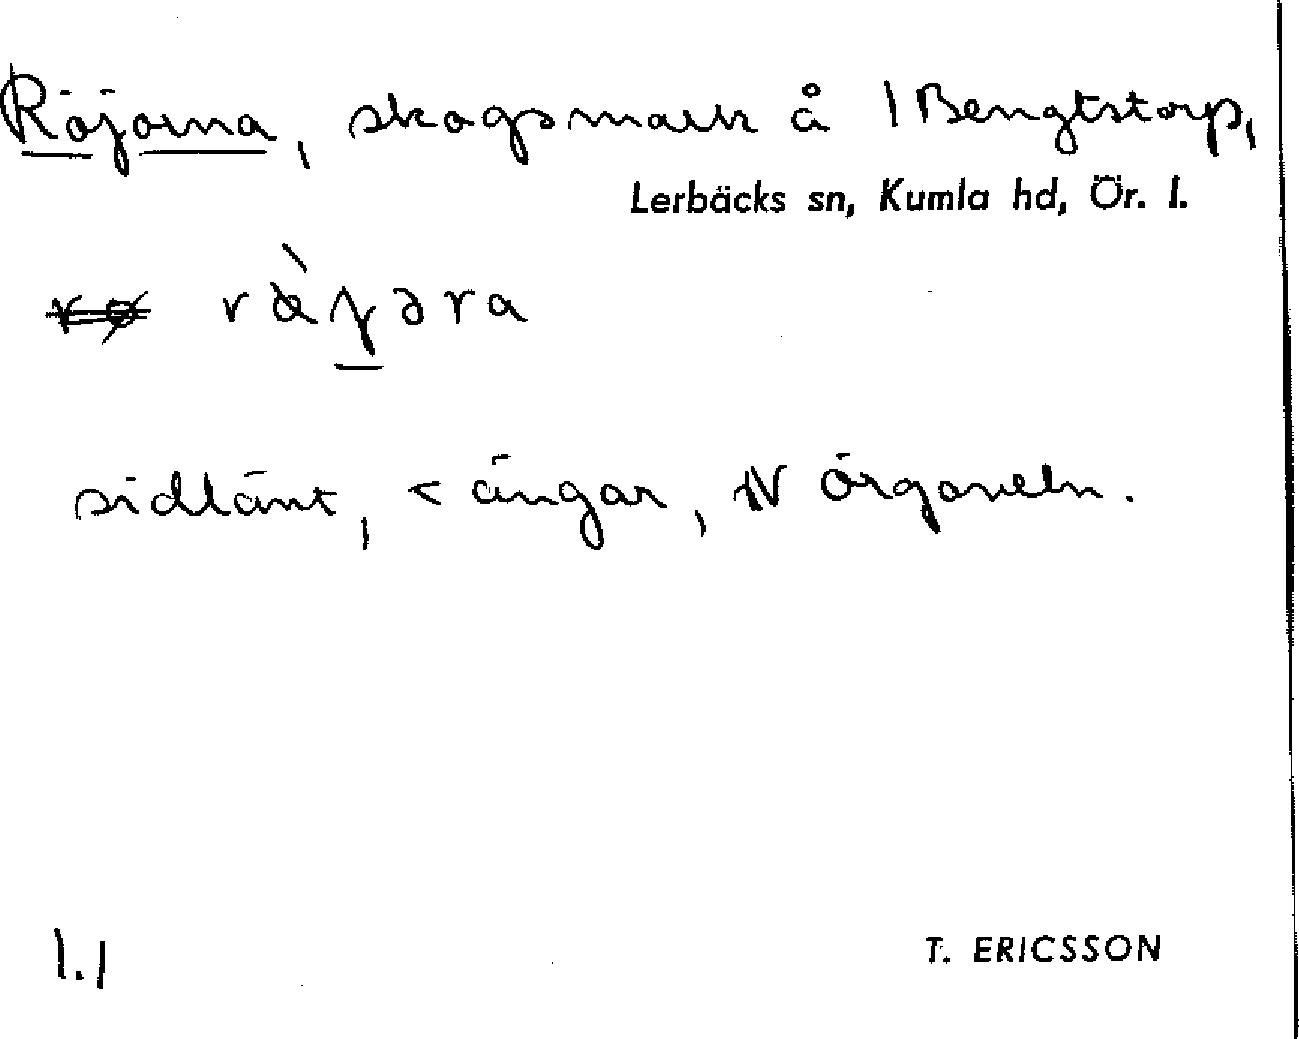 Röjorna, skogsmark å 1 Bengtstorp,
Lerbäcks sn, Kumla hd, Ör. l.
sidlänt, < ängar, N
1.1
T. ERICSSON